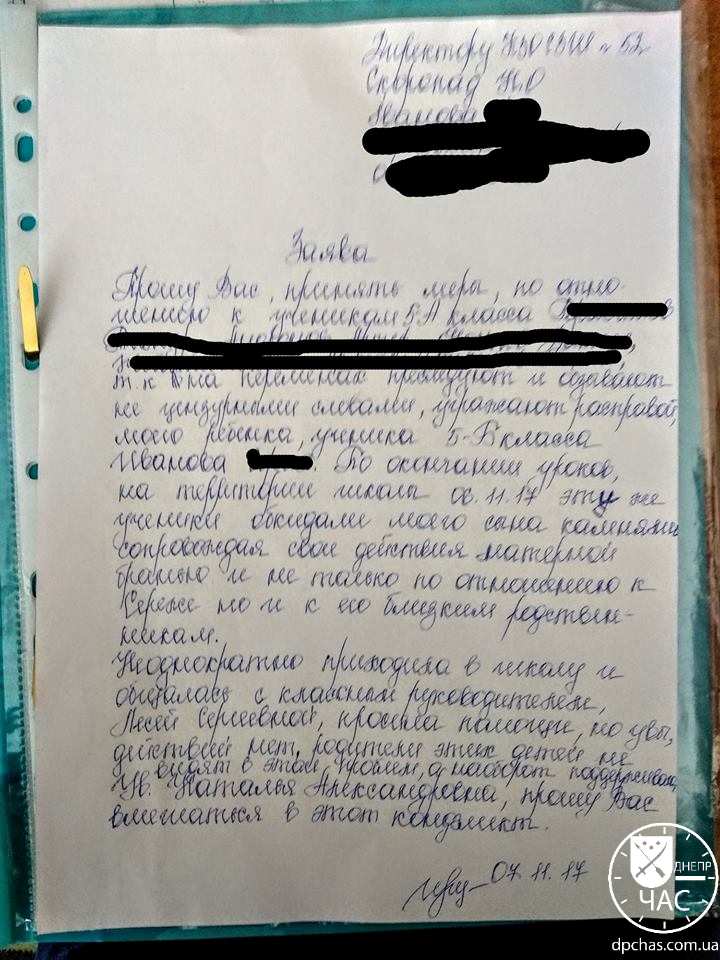 Директору КЗО СЗШ № 52
Скоропад Н.О
Иванова
Заява
Прошу Вас, принять меры, по отно-
шению к ученикам 5-А класса
т.к на переменах преследуют и обзывают
не цензурными словами, угражают расправой,
моего ребёнка, ученика 5-В класса
Иванова По окончании уроков,
на территории школы 06.11.17 эту же
ученики обкидали моего сына камнями
сопровождая свои действия матерной
бранью и не только по отношению к
Сереже но и к его близким родствен-
никам.
Неоднократно приходила в школу и
общалась с классным руководителем,
Лесей Сергеевной, просила помощи, но увы,
действий нет, родители этих детей не
видят в этом проблем, а наоборот поддерживают
Ув. Наталья Александровна, прошу Вас
вмешаться в этот конфликт.
07.11.17
ДНЕПР
ЧАС
dpchas.com.ua